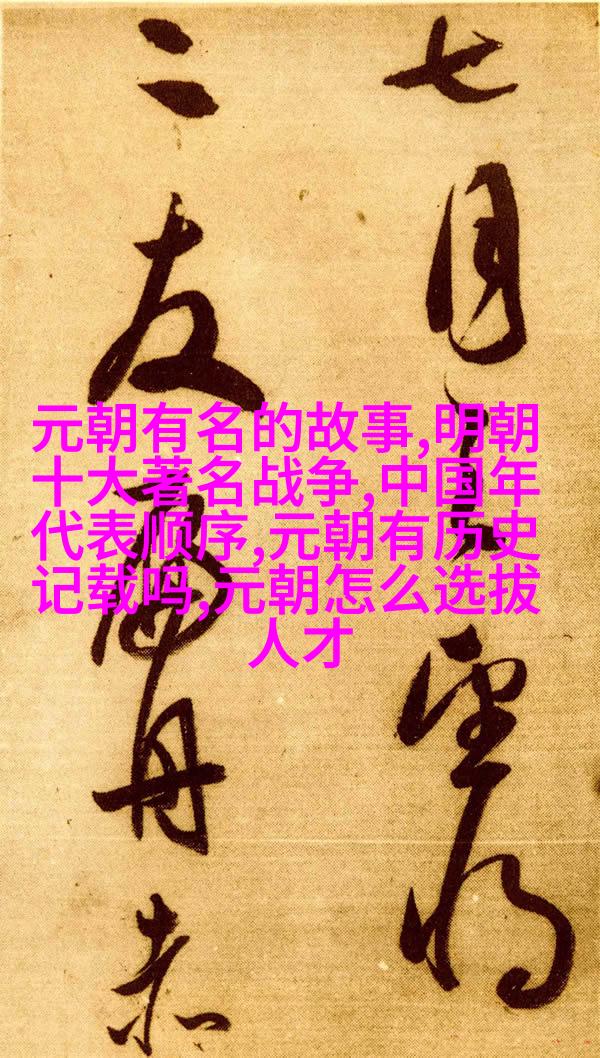 元朝有名的故事,明朝
十大著名战争,中国年
代表顺序,元朝有历史
记载吗,元朝怎么选拔
人才
七月望將
二友舟赤